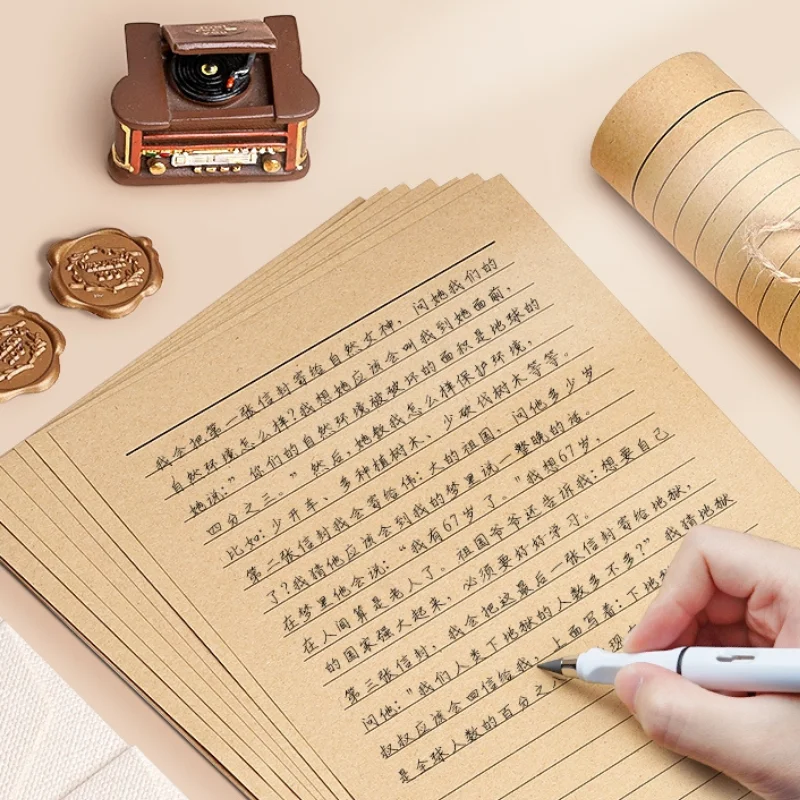 我会把第一张信封寄给自然女神，问她我们的
自然环境怎么样？我想她应该会叫我到她面前，
她说：”你们的自然环境被破坏的面积是地球的
四分之三。” 然后，她教我怎么样保护环境，
比如：少开车、多种植树木、少砍伐树木等等。
第二张信封我会寄给伟：大的祖国，问他多少岁
了？我猜他应该会到我的梦里说一整晚的话。
在梦里他会说：“我有67岁了。”我想67岁，
在人间算是老人了。祖国爷爷还告诉我：想要自己
的国家强大起来，必须要好好学习。
第三张信封，我会把这最后一张信封寄给地狱，
问他：“我们人类下地狱的人数多不多？”我猜地狱
叔叔应该会回信给我，上面写着：下地
是全球人数的百分之